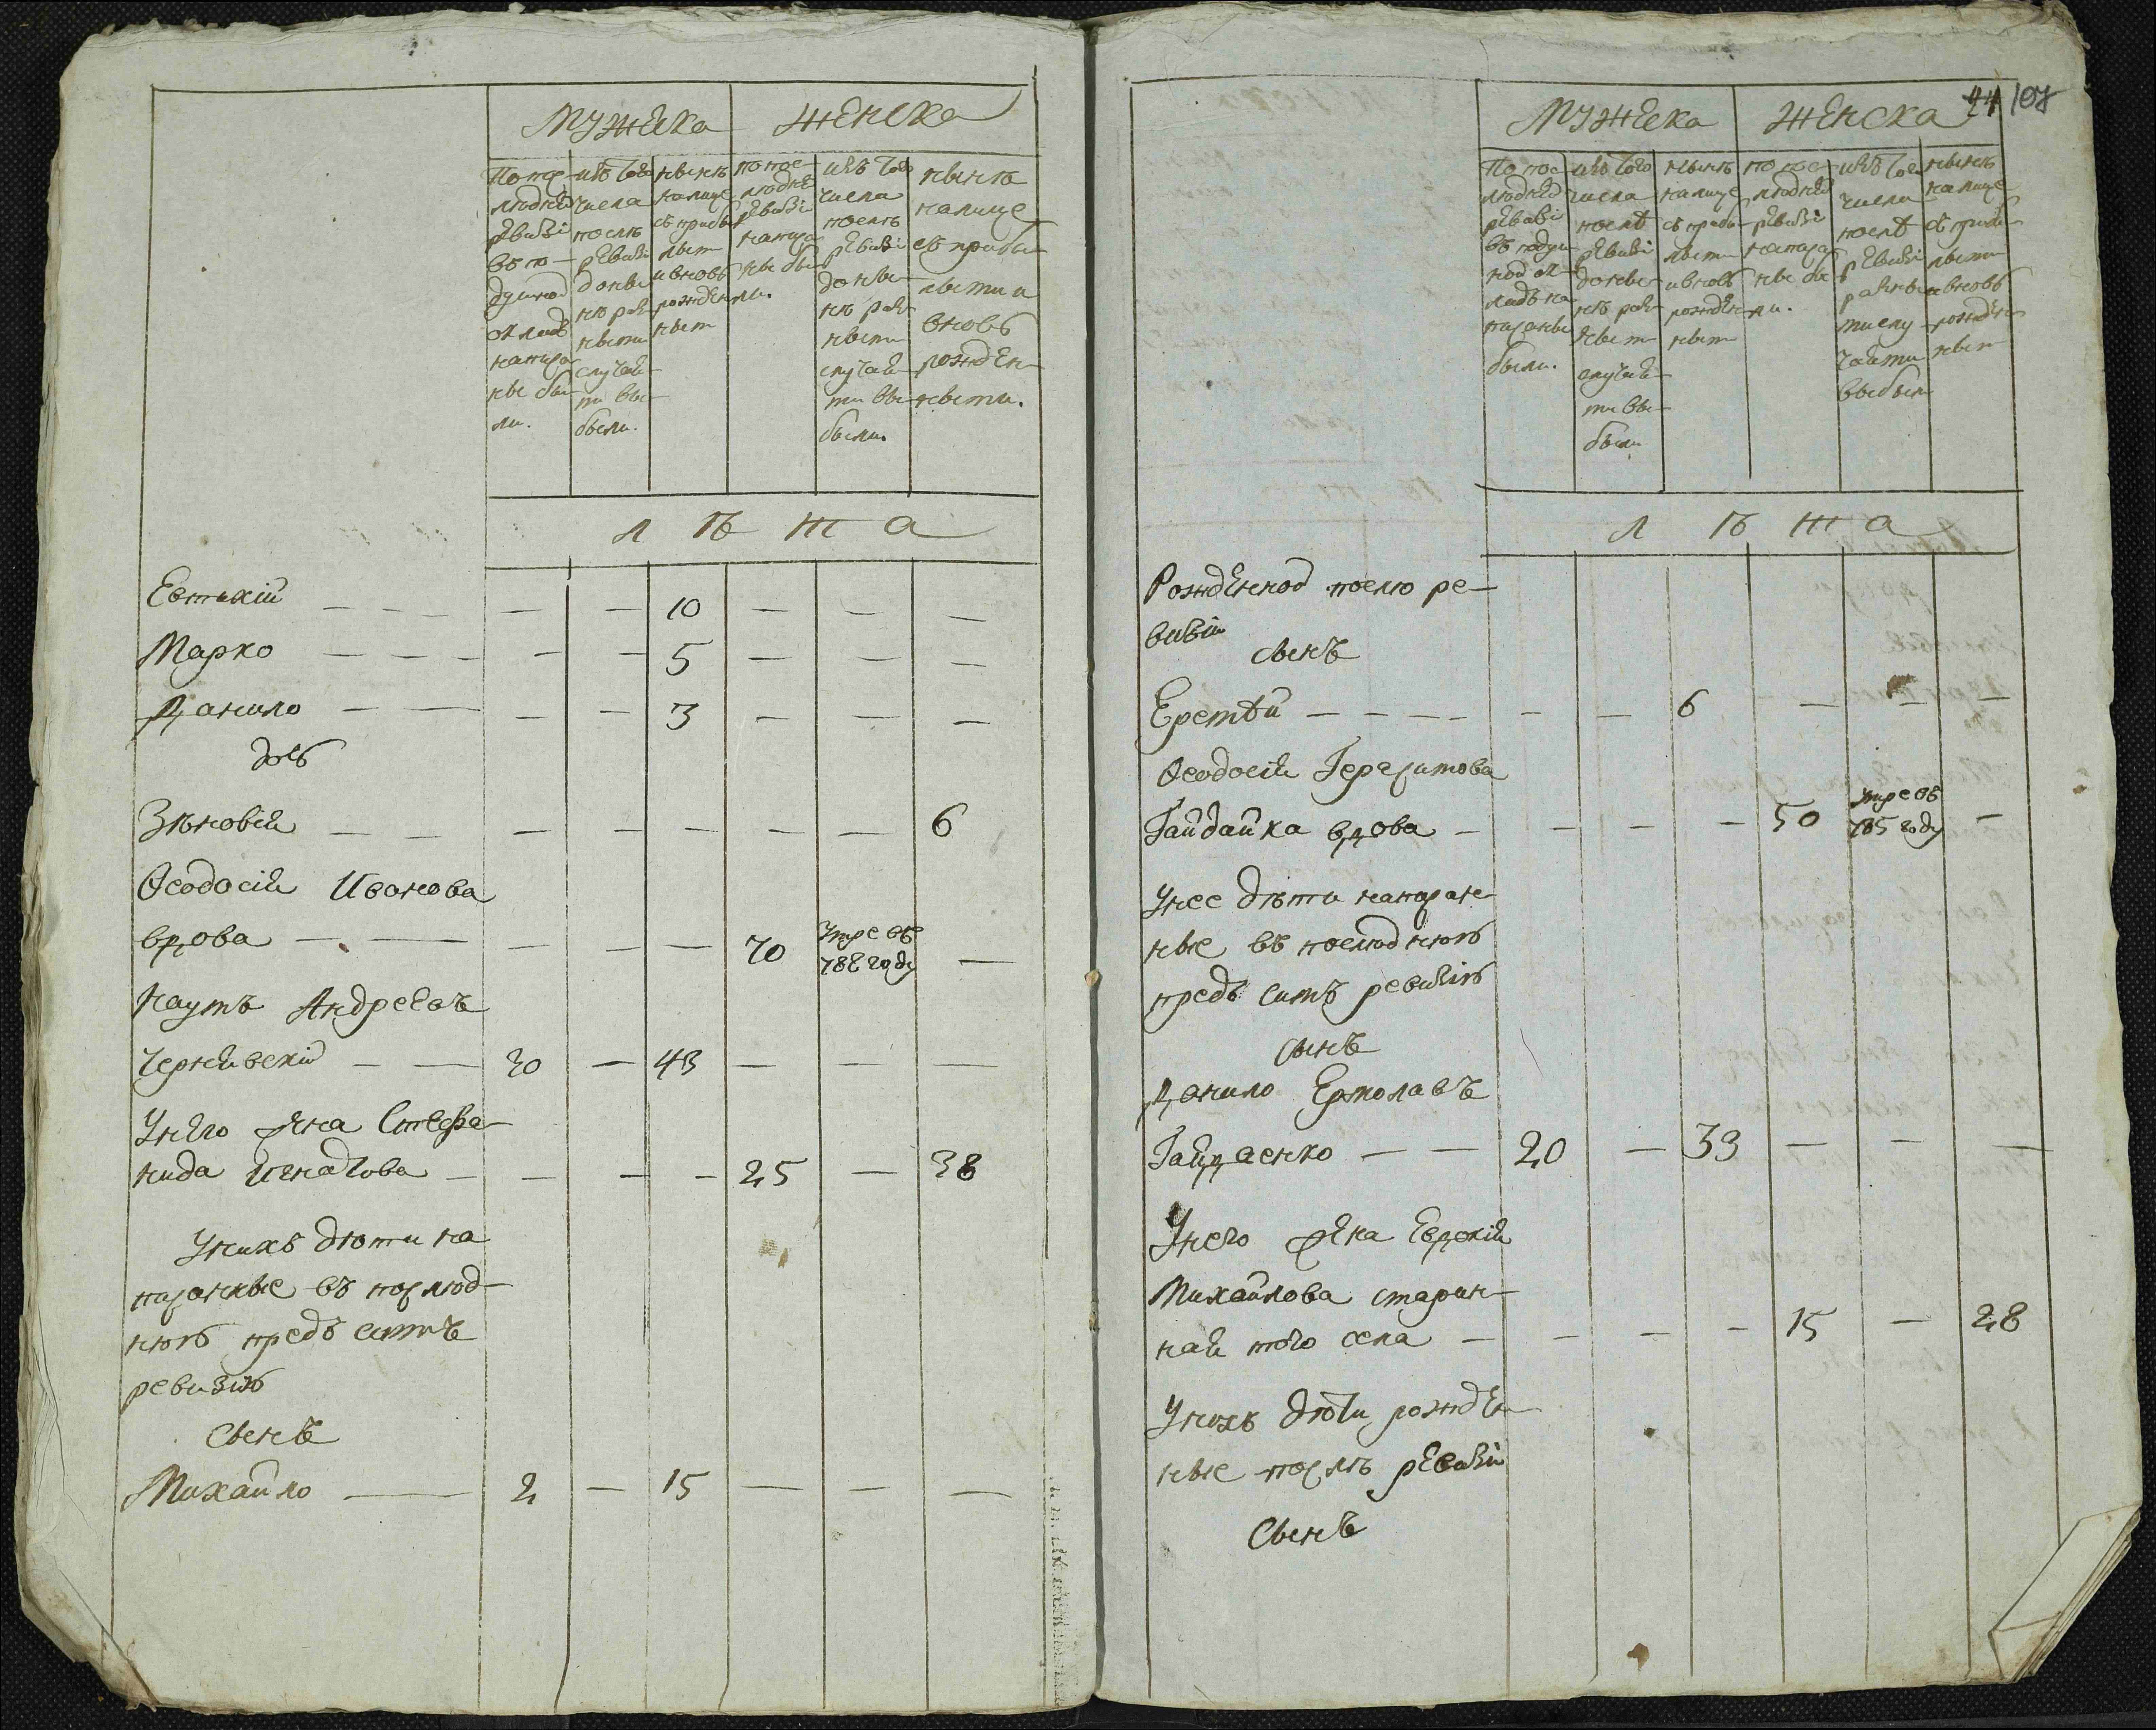 Мужеска Женска
По пос-
лѣдней
ревизіи
въ по-
душной
окладъ
написа
ны бы
ли.
изъ того
числа
послѣ
ревизіи
до ны
нѣ раз
ными
случаи-
ми вы-
были.
нынѣ
налице
съ прибы
лыми
и вновь
рожден
ными
по пос-
лѣдней
ревизіи
написа
ны бы
ли.
изъ того
числа
послѣ
ревизіи
до ны-
нѣ раз
ными
случаи-
ми вы-
были.
нынѣ
налице
съ прибы-
лыми и
вновь
рожден-
ными.
лѣта
Евтихій — — — — — 10 — — —
Марко — — — — — 5 — — —
Данило — — — — 3 — — —
дочь
Зѣновія — — — — — — — — 6
Ѳеодосія Иванова
вдова — — — — — 70 умре въ 782 году —
Наумъ Андреевъ
Чернявскій — — 30 — 43 — — —
У него жена Стефа-
нида Игнатова — — — — 25 — 38
У нихъ дѣти на
писанные въ послѣд-
нюю предъ симъ
ревизію
сынъ
Михайло — 2 — 15 — — —
44 107
Мужеска Женска
По пос-
лѣдней
ревизіи
въ подуш
ной ок-
ладъ на
писаны
были.
изъ того
числа
послѣ
ревизіи
до ны-
нѣ раз-
ными
случаи-
ми вы-
были
нынѣ
налице
съ прибы-
лыми
и вновь
рожден-
ными
по пос-
лѣдней
ревизіи
написа
ны бы
ли.
изъ того
числа
послѣ
ревизіи
разны
ми слу
чаями
выбыли
нынѣ
налице
съ прибы-
лыми
и вновь
рожден
ными
лѣта
Рожденной послѣ ре-
визіи
сынъ
Еремѣй — — — — — — 6 — — —
Ѳеодосія Герасимова
Гайдайка вдова — — — — 50 умре въ 785 году —
У нее дѣти написан-
ные въ послѣднюю
предъ симъ ревизію
сынъ
Данило Ермолавъ
Гайдаенко — — 20 — 33 — — —
У него жена Евдокія
Михайлова старин-
ная того села — — — — 15 — 28
У нихъ дѣти рожден-
ные послѣ ревизіи
Сынъ